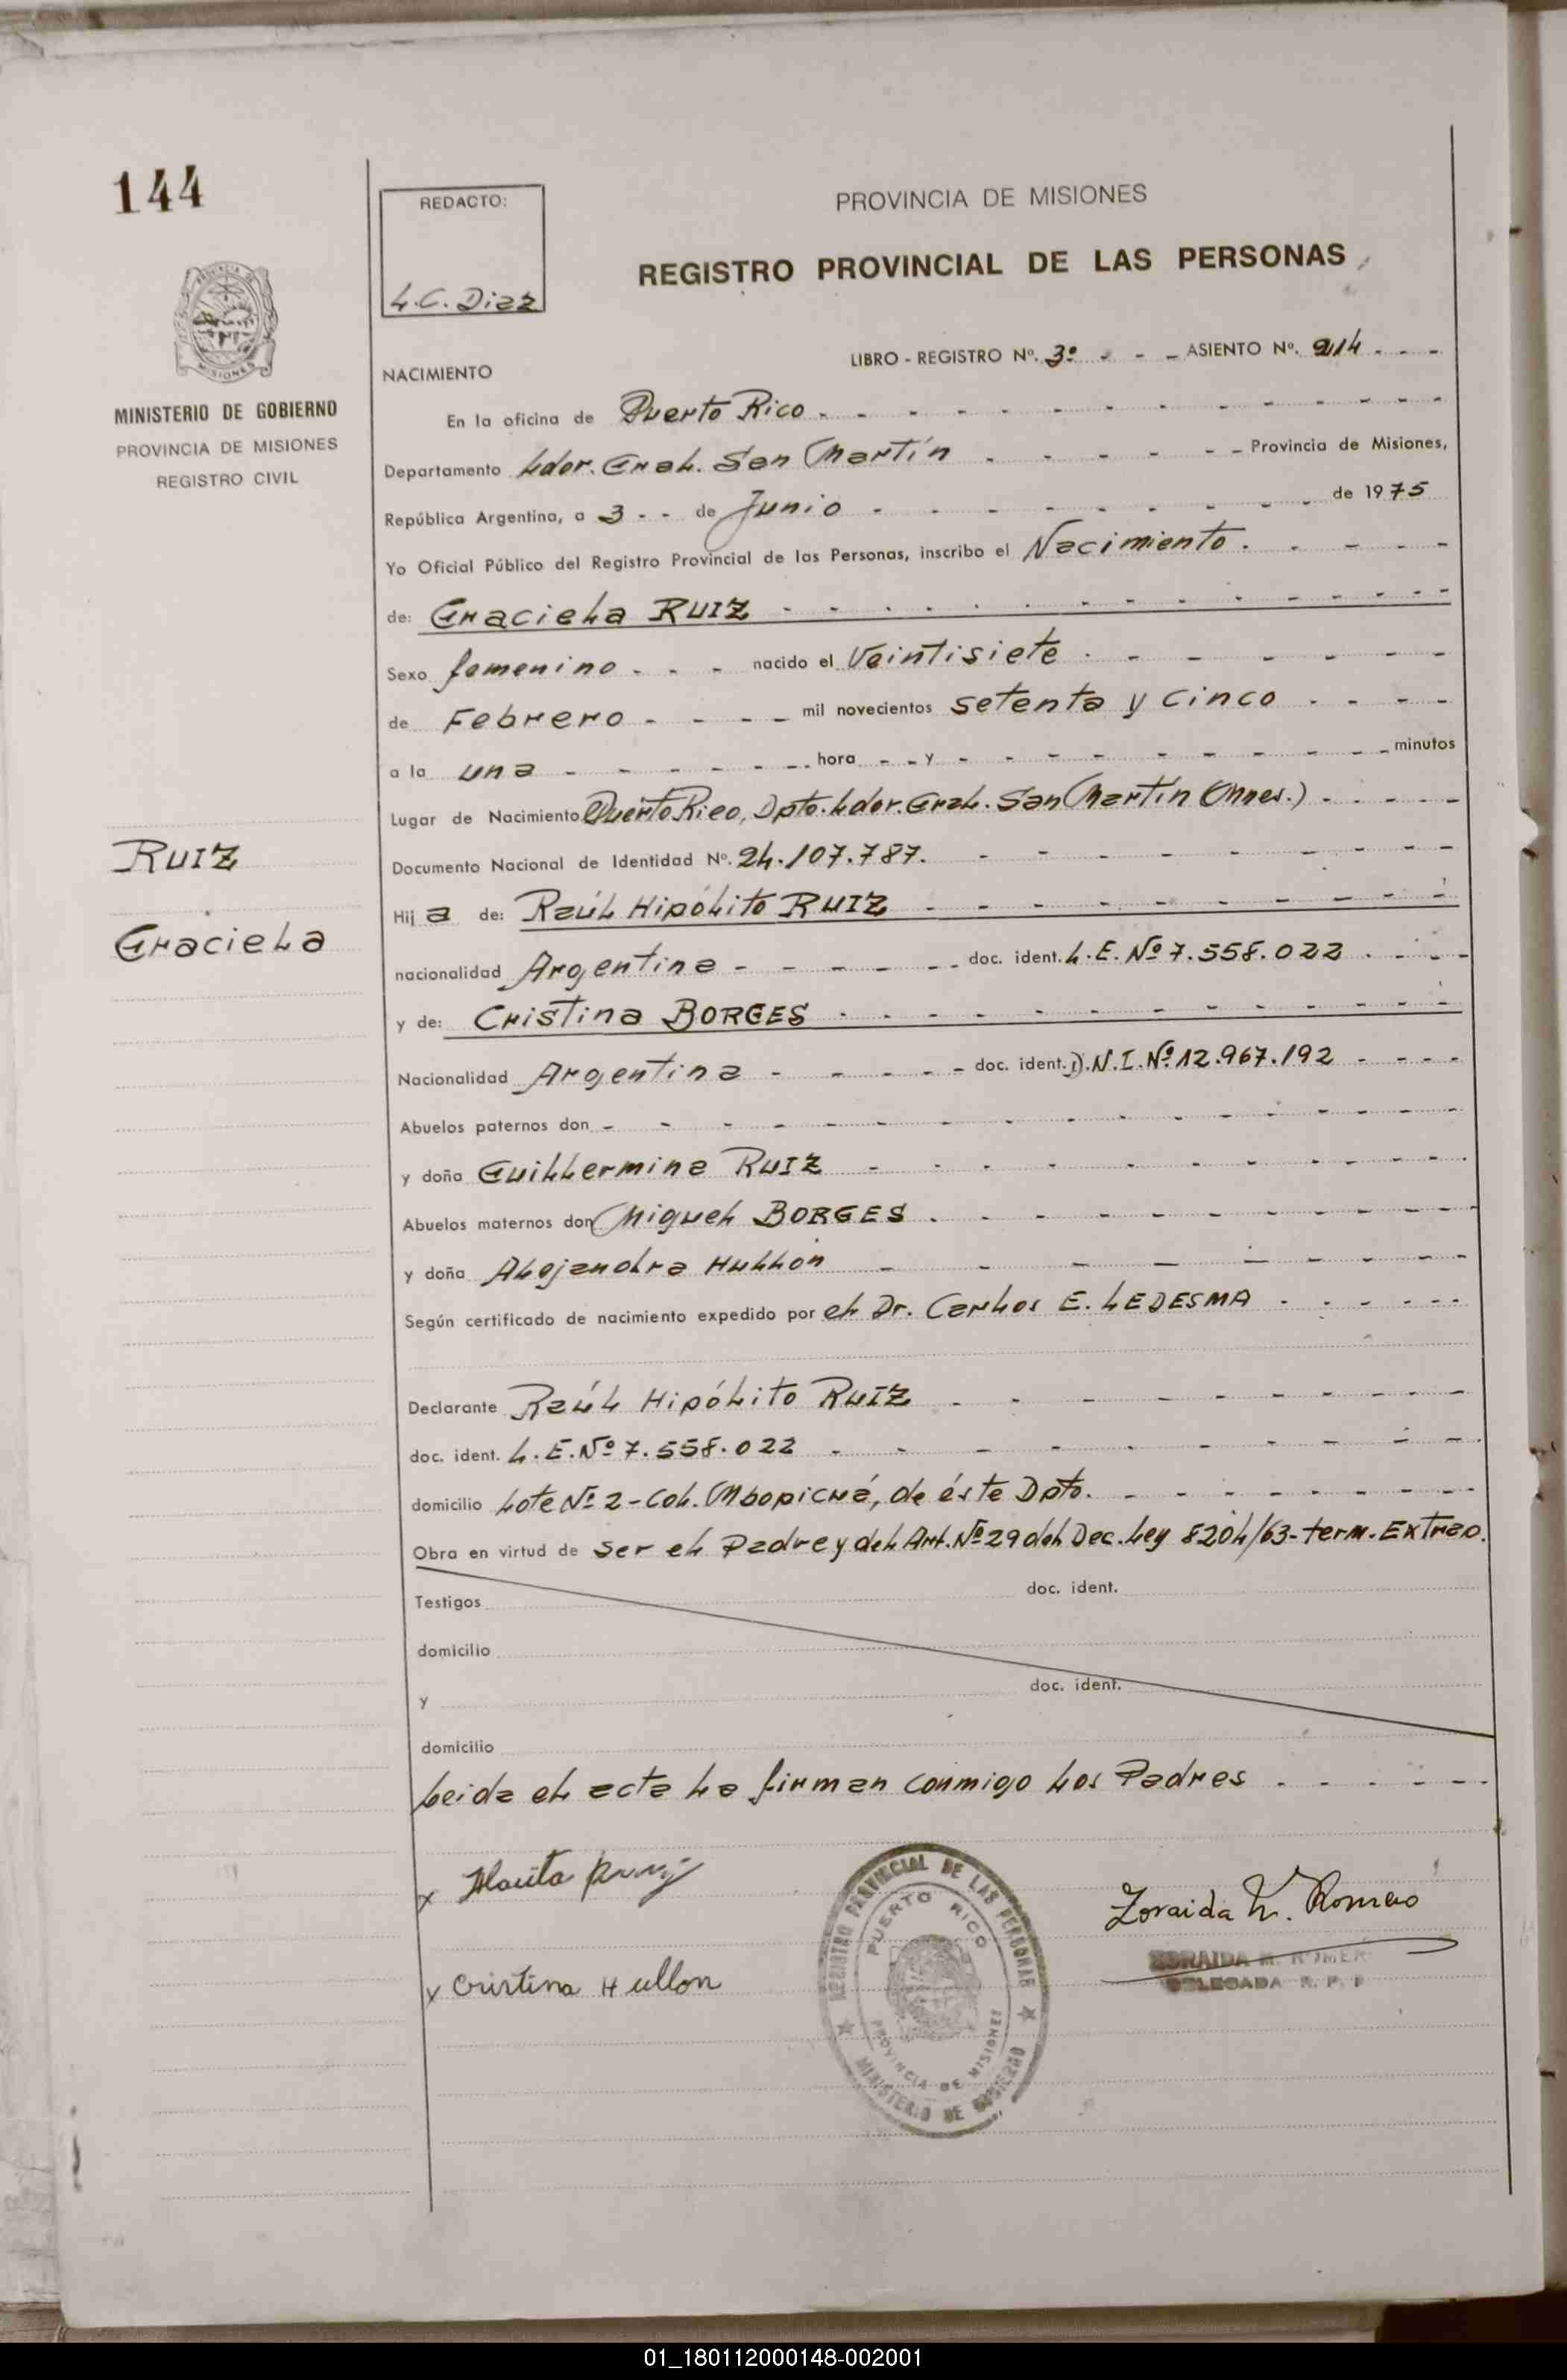 144
REDACTO:
L.C. Diaz
PROVINCIA DE MISIONES
REGISTRO PROVINCIAL DE LAS PERSONAS
MISIONES
MINISTERIO DE GOBIERNO
PROVINCIA DE MISIONES
REGISTRO CIVIL
LIBRO - REGISTRO Nº. 3º - - - ASIENTO Nº. 214 - - -
NACIMIENTO
En la oficina de Puerto Rico
Departamento Ldor. Gral. San Martín - - - Provincia de Misiones,
República Argentina, a 3 - - de Junio - - - de 1975
Yo Oficial Público del Registro Provincial de las Personas, inscribo el Nacimiento
de: Graciela RUIZ
Sexo femenino - - - nacido el Veintisiete
de Febrero - - - - mil novecientos setenta y cinco
a la una - - - hora - - y - - - minutos
Lugar de Nacimiento Puerto Rico, Dpto. Ldor. Gral. San Martín (Mnes.)
Documento Nacional de Identidad Nº. 24.107.787.
RUIZ
Graciela
Hij a de: Raúl Hipólito RUIZ
nacionalidad Argentina - - - doc. ident. L.E. Nº 7.558.022
y de: Cristina BORGES
Nacionalidad Argentina - - - doc. ident. D.N.I. Nº 12.967.192
Abuelos paternos don - - -
y doña Guillermina RUIZ
Abuelos maternos don Miguel BORGES
y doña Alejandra Hullon
Según certificado de nacimiento expedido por el Dr. Carlos E. LEDESMA
Declarante Raúl Hipólito RUIZ
doc. ident. L.E. Nº 7.558.022
domicilio Lote Nº 2 - Col. Mbopicuá, de éste Dpto.
Obra en virtud de ser el Padre y del Art. Nº 29 del Dec. Ley 8204/63 - term. Extrao.
Testigos doc. ident.
domicilio
y doc. ident.
domicilio
Leida el acta la firman conmigo los Padres
x
x Cristina Hullon
REGISTRO PROVINCIAL DE LAS PERSONAS
PUERTO RICO
PROVINCIA DE MISIONES
MINISTERIO DE GOBIERNO
Zoraida M. Romero
ZORAIDA M. ROMER
DELEGADA R. P. P
01_180112000148-002001